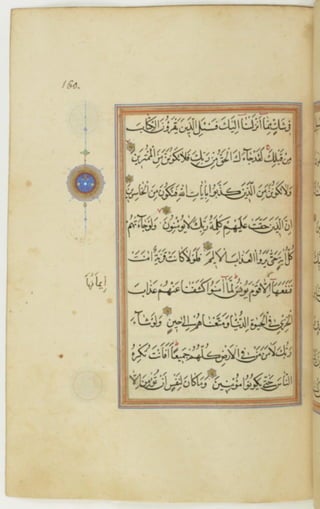 160.
فِي شَكٍّ مِمَّا اَنْزَلْنَا اِلَيْكَ فَسْئَلِ الَّذِينَ يَقْرَؤُنَ الْكِتَابَ
مِنْ قَبْلِكَ لَقَدْ جَاءَكَ الْحَقُّ مِنْ رَبِّكَ فَلَا تَكُونَنَّ مِنَ الْمُمْتَرِينَ
وَلَا تَكُونَنَّ مِنَ الَّذِينَ كَذَّبُوا بِاٰيَاتِ اللهِ فَتَكُونَ مِنَ الْخَاسِرِينَ
اِنَّ الَّذِينَ حَقَّتْ عَلَيْهِمْ كَلِمَةُ رَبِّكَ لَا يُؤْمِنُونَ وَلَوْ جَاءَتْهُمْ
كُلُّ اٰيَةٍ حَتَّى يَرَوُا الْعَذَابَ الْاَلِيمَ فَلَوْلَا كَانَتْ قَرْيَةٌ اٰمَنَتْ
فَنَفَعَهَا اِلَّا قَوْمَ يُونُسَ لَمَّا اٰمَنُوا كَشَفْنَا عَنْهُمْ عَذَابَ
اِيمَانُهَا
الْخِزْيِ فِي الْحَيٰوةِ الدُّنْيَا وَمَتَّعْنَاهُمْ اِلَى حِينٍ وَلَوْ شَاءَ
رَبُّكَ لَاٰمَنَ مَنْ فِي الْاَرْضِ كُلُّهُمْ جَمِيعًا اَفَاَنْتَ تُكْرِهُ
النَّاسَ حَتَّى يَكُونُوا مُؤْمِنِينَ وَمَا كَانَ لِنَفْسٍ اَنْ تُؤْمِنَ اِلَّا